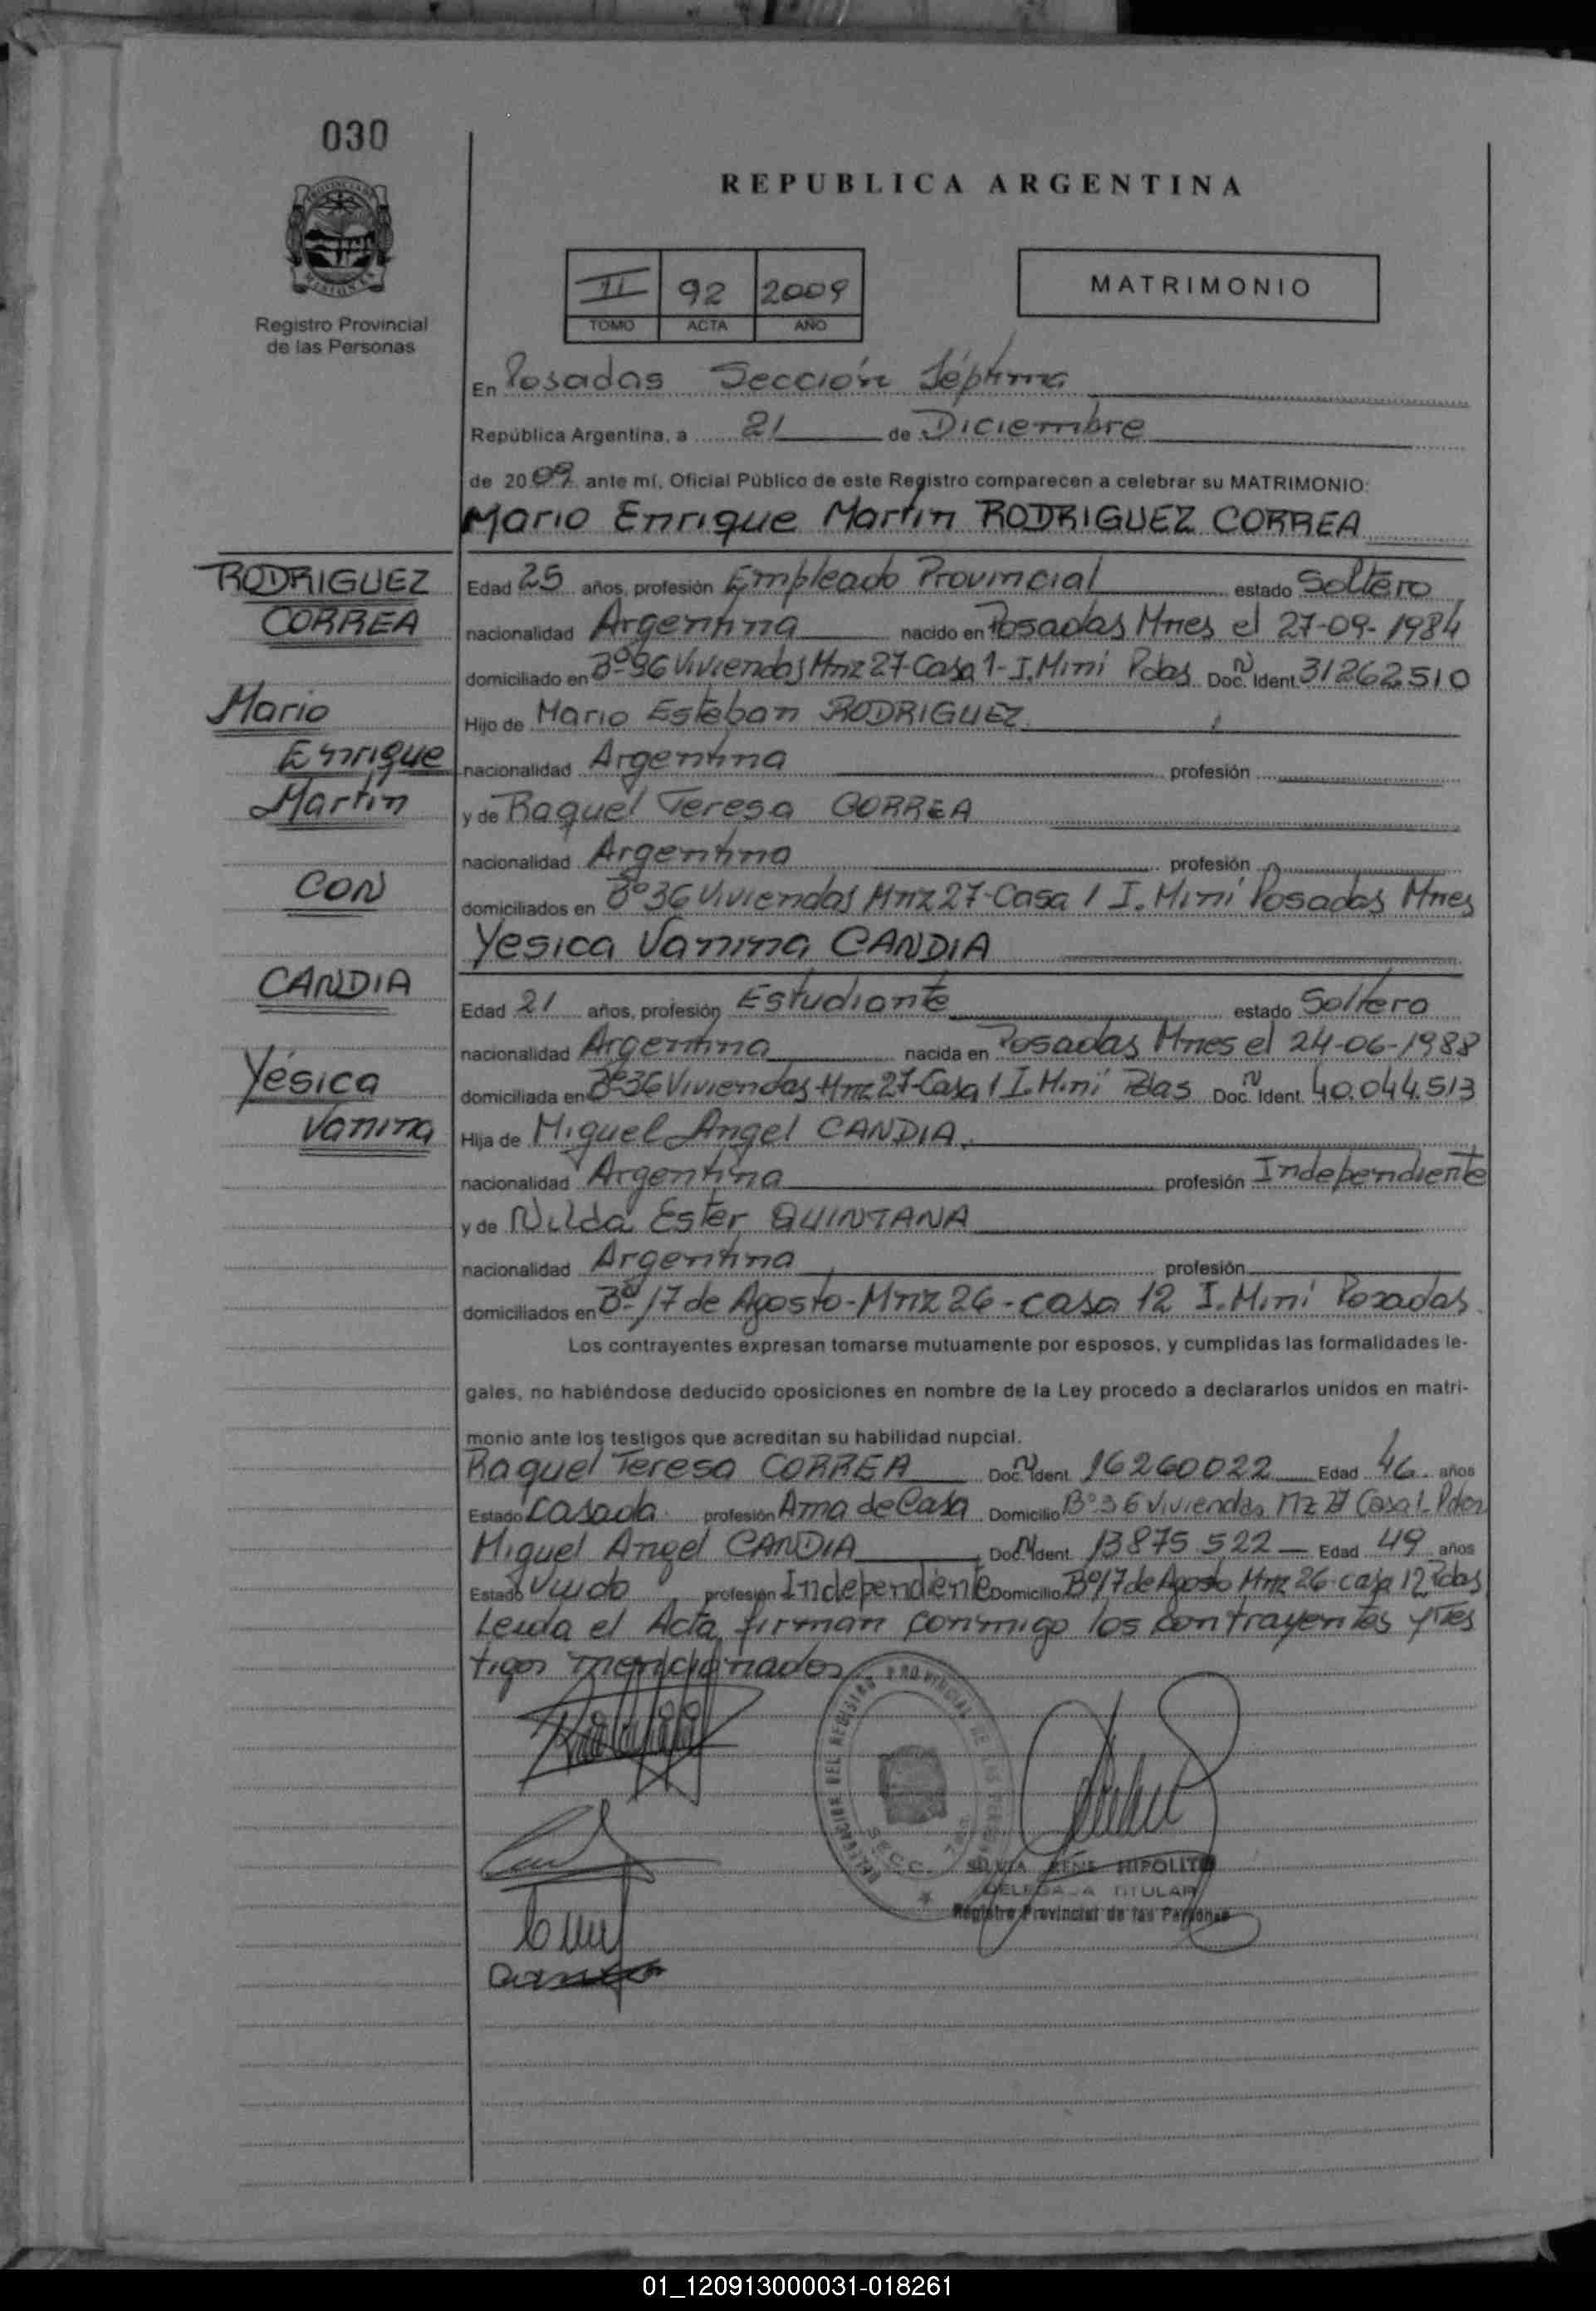 030
REPUBLICA ARGENTINA
II 92 2009
TOMO ACTA AÑO
MATRIMONIO
Registro Provincial
de las Personas
En Posadas Sección Séptima
República Argentina, a 21 de Diciembre
de 2009 ante mí, Oficial Público de este Registro comparecen a celebrar su MATRIMONIO:
Mario Enrique Martin RODRIGUEZ CORREA
RODRIGUEZ
CORREA
Mario
Enrique
Martín
CON
CANDIA
Yésica
Vanina
Edad 25 años, profesión Empleado Provincial estado Soltero
nacionalidad Argentina nacido en Posadas Mnes el 27-09-1984
domiciliado en Bº 36 Viviendas Mnz 27-Casa 1- I. Mini Pdas Doc. N Ident. 31262510
Hijo de Mario Esteban RODRIGUEZ
nacionalidad Argentina profesión
y de Raquel Teresa CORREA
nacionalidad Argentina profesión
domiciliados en Bº 36 Viviendas Mnz 27-Casa 1 I. Mini Posadas Mnes
Yesica Vanina CANDIA
Edad 21 años, profesión Estudiante estado Soltera
nacionalidad Argentina nacida en Posadas Mnes el 24-06-1988
domiciliada en Bº 36 Viviendas Mnz 27-Casa 1 I. Mini Pdas Doc. N Ident. 40.044.513
Hija de Miguel Angel CANDIA
nacionalidad Argentina profesión Independiente
y de Nilda Ester QUINTANA
nacionalidad Argentina profesión
domiciliados en Bº 17 de Agosto-Mnz 26-casa 12 I. Mini Posadas
Los contrayentes expresan tomarse mutuamente por esposos, y cumplidas las formalidades le-
gales, no habiéndose deducido oposiciones en nombre de la Ley procedo a declararlos unidos en matri-
monio ante los testigos que acreditan su habilidad nupcial.
Raquel Teresa CORREA Doc. N Ident. 16260022 Edad 46 años
Estado Casada profesión Ama de Casa Domicilio Bº 36 Viviendas Mz 27 Casa 1- Pdas
Miguel Angel CANDIA Doc. N Ident. 13875522 Edad 49 años
Estado Viudo profesión Independiente Domicilio Bº 17 de Agosto Mnz 26 casa 12 Pdas
Leída el Acta firman conmigo los contrayentes y tes
tigos mencionados
DELEGACION DEL REGISTRO PROVINCIAL DE LAS PERSONAS
SECC.
SILVIA HIPOLITO
DELEGADA TITULAR
Registro Provincial de las Personas
01_120913000031-018261